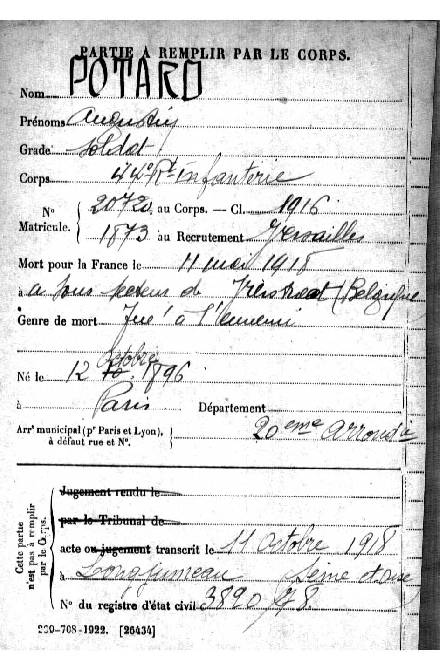 PARTIE À REMPLIR PAR LE CORPS.
Nom POTARD
Prénoms Augustin
Grade Soldat
Corps 44e Rt infanterie
N° Matricule. { 20720 au Corps. — Cl. 1916
1873 au Recrutement Versailles
Mort pour la France le 11 mai 1918
à a (Belgique
Genre de mort Tué à l'ennemi
Né le 12 10 Octobre 1896
à Paris Département
Arrt municipal (pr Paris et Lyon), à défaut rue et N°. } 20 eme Arrondt
Cette partie n'est pas à remplir par le Corps.
Jugement rendu le
par le Tribunal de
acte ou jugement transcrit le 11 Octobre 1918
à Longjumeau Seine et Oise
N° du registre d'état civil 3890/78.
239-708-1922. [26434]